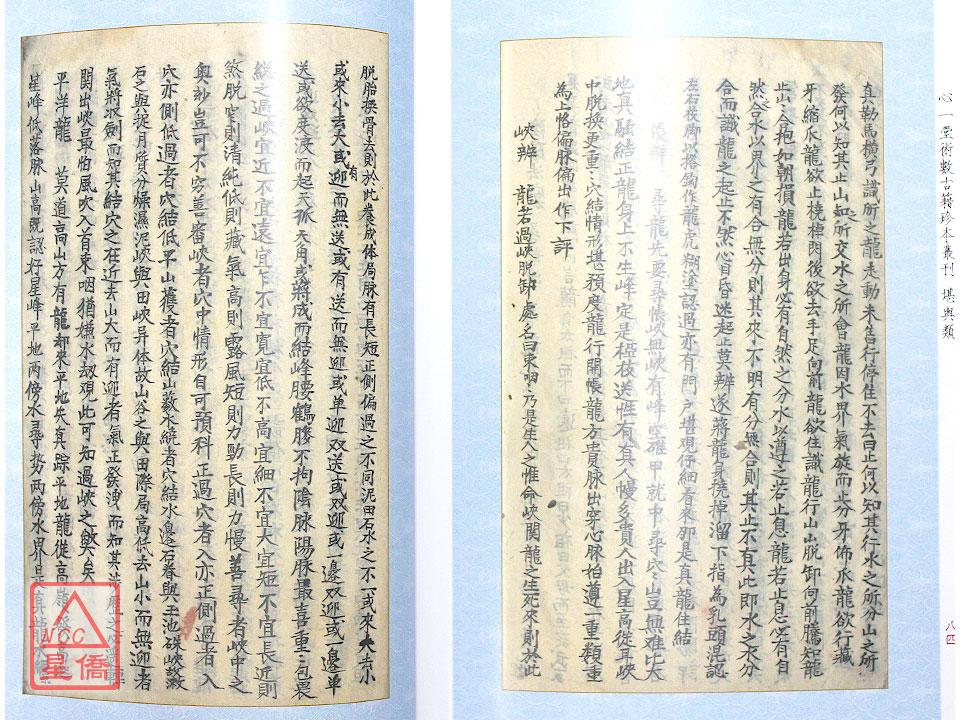 心一堂術數古籍珍本叢刊 堪輿類
八四
真勒馬橫弓識所之龍走動未告行停住不去曰止何以知其行水之所分山之所
發何以知其止山如所交水之所會龍因水界氣旋而止分牙佈爪龍欲行藏
牙縮爪龍欲止橈棹閃後欲去手足向前龍欲住識龍行山山脫卸向前騰知龍
止山山合抱如朝損龍若出身必有自然之分水以導之若止息龍若止息必有自
然合水以界之有合無分則其來不明有分無合則其止不真此即水之來分
合而識龍之起止不然心目昏迷起止莫辨遂蔣龍身橈掉溜下指為乳頭混認
左右枝脚以搭鉤作龍虎糊塗認過亦有門戶堪觀仔細看來卻是真龍住結
尋龍先要尋帳峽無峽有峰空磪甲就中尋穴穴豈無難比大
地真融結正龍身上不生峰定是椏枝送惟有真穴慢多貴人出入星高從耳峽
中脫換更重穴結情形堪預度龍行開帳龍方貴脉出穿心脉始尊一重一類重
為上格偏脉偏出作下評
峽辨 龍若過峽脫卸處名曰束咽乃是生人之惟命峽関龍之生死來則於此
脫胎換骨去則於此養成体局脉有長短正側偏過之不同泥田石水之不一或來大去小
或來小去大或有迎而無送或有送而無迎或單迎双送或双迎或一邊双迎或一邊單
送或欲度液而起天弧天角或將成而結峰腰鶴膝不拘陰脉陽脉最喜重重包裹
總之過峽宜近不宜遠宜乍不宜寬宜低不高宜細不宜大宜短不宜長近則
煞脫窄則清純低則藏氣高則露風短則力勁長則力慢善尋者峽中之
奧妙豈可不穷善審峽者穴中情形自可預科正過穴者入亦正側過者入
穴亦側低過者穴結低平山蘐者穴結山藪水繞者穴結水邊石脊與玉池硃峽
石之與捉月質分燥濕泥峽與田峽异体故山谷之與田際局高低去山小而無迎者
氣將收劍而知其結穴之在近去山大而有迎者氣正發洩而知其
関出峽最怕風吹入首束咽猶嫌水刼覌此可知過峽之與矣
平洋龍 莫道高山方有龍却來平地失真踪平地龍從高嶺發高起
星峰低落脉山高既認好星峰平地兩傍水尋勢兩傍水界是真龍
NCC
星僑